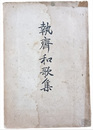 執齊和歌集